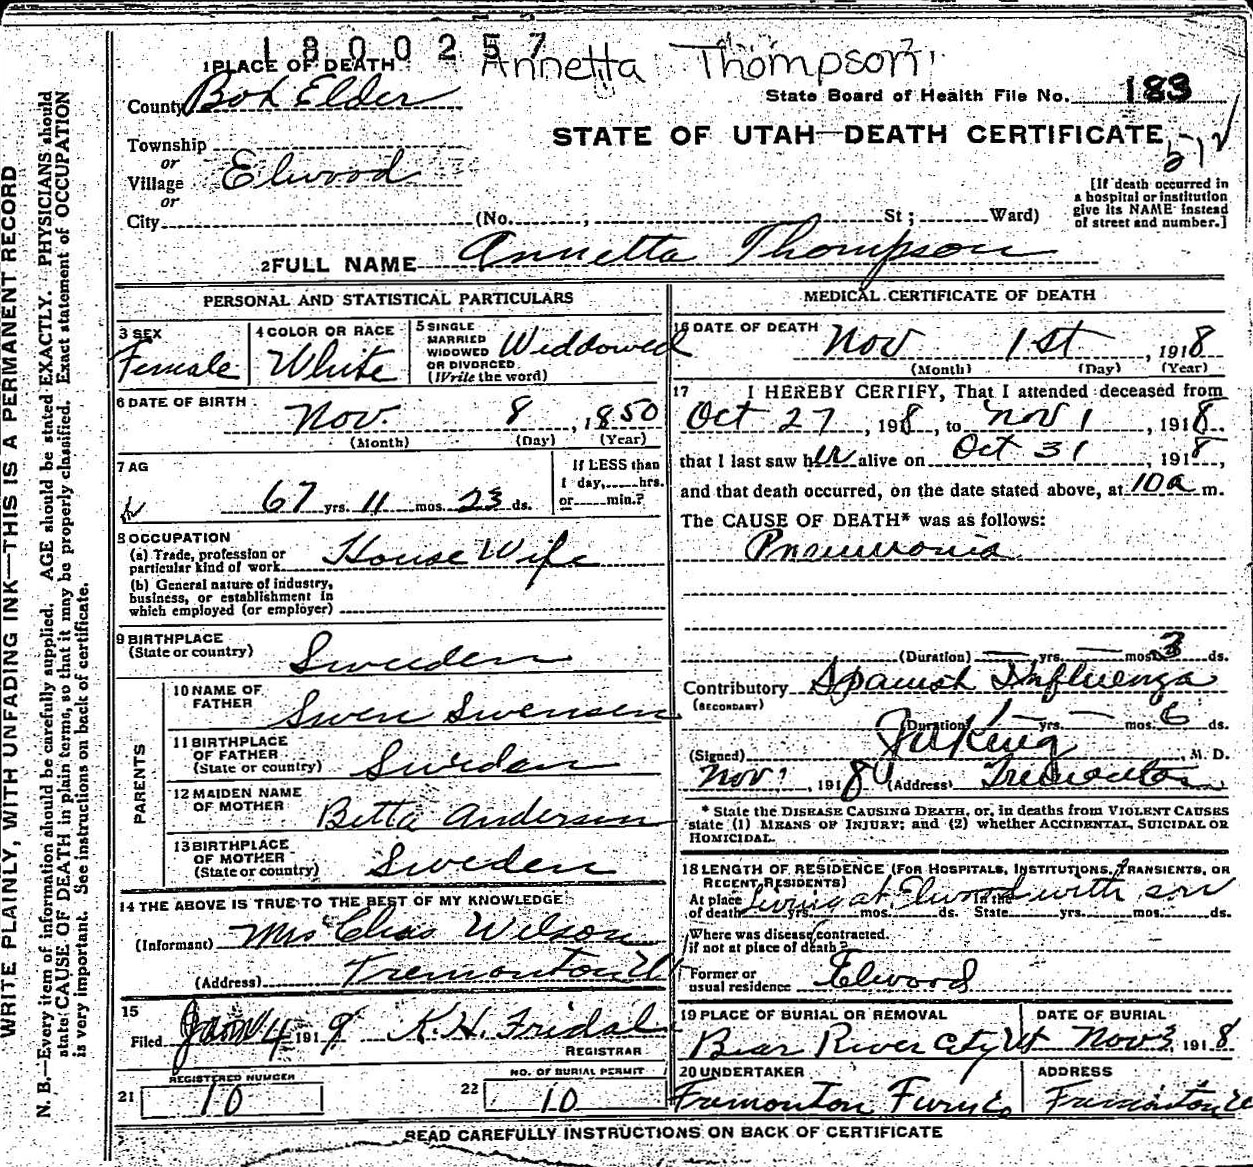 1800257
Annetta Thompson
1 PLACE OF DEATH
County Box Elder
State Board of Health File No. 183
STATE OF UTAH—DEATH CERTIFICATE
Township
or
Village Elwood
or
City (No. ; St ; Ward)
[If death occurred in
a hospital or institution
give its NAME instead
of street and number.]
2 FULL NAME Annetta Thompson
PERSONAL AND STATISTICAL PARTICULARS
3 SEX
Female
4 COLOR OR RACE
White
5 SINGLE
MARRIED
WIDOWED
OR DIVORCED.
(Write the word)
Widdowed
6 DATE OF BIRTH
Nov. 8, 1850
(Month) (Day) (Year)
7 AG
67 yrs. 11 mos. 23 ds.
If LESS than
1 day, hrs.
or min.?
8 OCCUPATION
(a) Trade, profession or
particular kind of work House Wife
(b) General nature of industry,
business, or establishment in
which employed (or employer)
9 BIRTHPLACE
(State or country) Sweden
PARENTS
10 NAME OF
FATHER Swen Swensen
11 BIRTHPLACE
OF FATHER
(State or country) Sweden
12 MAIDEN NAME
OF MOTHER Betta Anderson
13 BIRTHPLACE
OF MOTHER
(State or country) Sweden
14 THE ABOVE IS TRUE TO THE BEST OF MY KNOWLEDGE
(Informant) Mrs Chas Wilson
(Address) Tremonton U
15
Filed Jan 4 1919 K. H. Fridal
REGISTRAR
21 REGISTERED NUMBER
10
22 NO. OF BURIAL PERMIT
10
MEDICAL CERTIFICATE OF DEATH
16 DATE OF DEATH
Nov 1st, 1918
(Month) (Day) (Year)
17 I HEREBY CERTIFY, That I attended deceased from
Oct 27, 1918, to Nov 1, 1918.
that I last saw her alive on Oct 31, 1918,
and that death occurred, on the date stated above, at 10 a m.
The CAUSE OF DEATH* was as follows:
Pneumonia
(Duration) — yrs. — mos. 3 ds.
Contributory Spanish Influenza
(SECONDARY)
(Duration) — yrs. — mos. 6 ds.
(Signed) King, M. D.
Nov 1, 1918 (Address) Tremonton
* State the DISEASE CAUSING DEATH, or, in deaths from VIOLENT CAUSES
state (1) MEANS OF INJURY; and (2) whether ACCIDENTAL, SUICIDAL OR
HOMICIDAL.
18 LENGTH OF RESIDENCE (FOR HOSPITALS, INSTITUTIONS, TRANSIENTS, OR
RECENT RESIDENTS)
At place In the
of death yrs. mos. ds. State yrs. mos. ds.
living at Elwood with son
Where was disease contracted.
if not at place of death?
Former or
usual residence Elwood
19 PLACE OF BURIAL OR REMOVAL
Bear River City Ut
DATE OF BURIAL
Nov 3, 1918
20 UNDERTAKER
Tremonton Furn Co
ADDRESS
Tremonton
READ CAREFULLY INSTRUCTIONS ON BACK OF CERTIFICATE
WRITE PLAINLY, WITH UNFADING INK—THIS IS A PERMANENT RECORD
N. B.—Every item of information should be carefully supplied. AGE should be stated EXACTLY. PHYSICIANS should
state CAUSE OF DEATH in plain terms, so that it may be properly classified. Exact statement of OCCUPATION
is very important. See instructions on back of certificate.